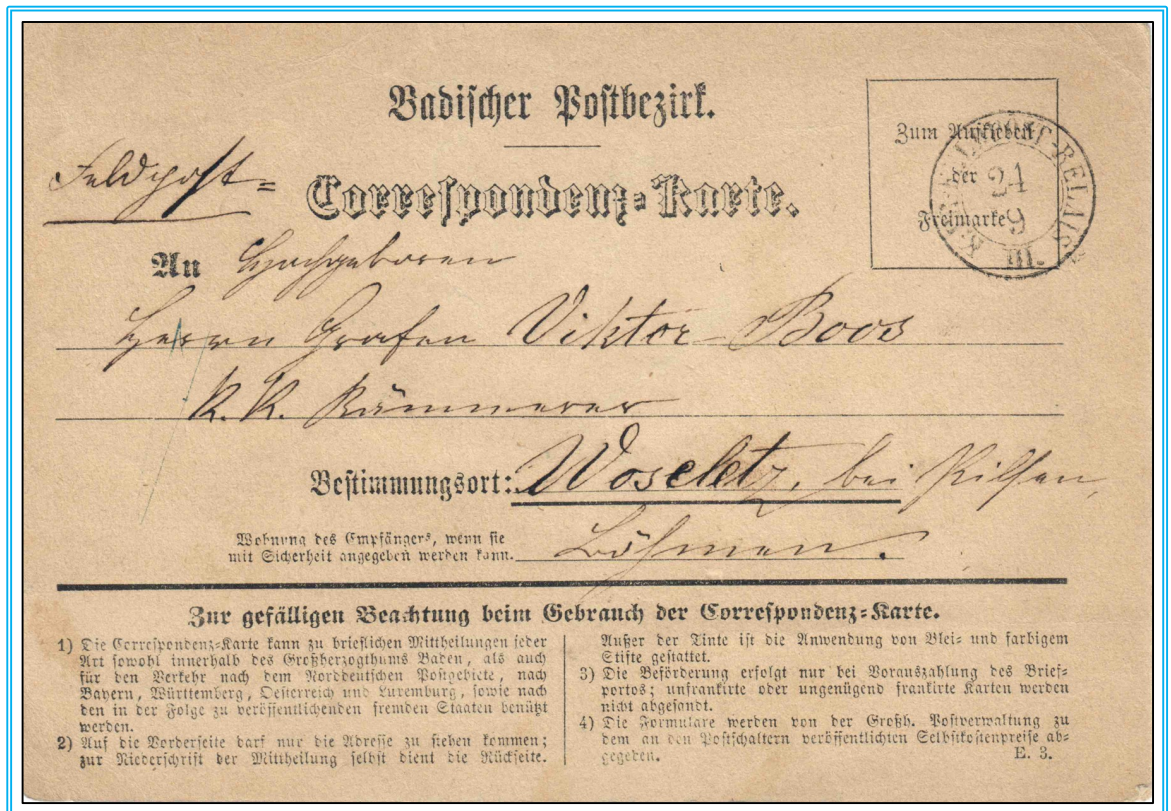 Badischer Postbezirk.
Feldpost=
Correspondenz=Karte.
Zum Aufkleben
der
Freimarke
K. PR. FELDPOST-RELAIS
24
9
III.
An Hochgeboren
Herrn Grafen Viktor Boos
K. K. Kämmerer
Bestimmungsort: Woseletz, bei Pilsen,
Wohnung des Empfängers, wenn sie
mit Sicherheit angegeben werden kann. Böhmen.
Zur gefälligen Beachtung beim Gebrauch der Correspondenz=Karte.
1) Die Correspondenz=Karte kann zu brieflichen Mittheilungen jeder
Art sowohl innerhalb des Großherzogthums Baden, als auch
für den Verkehr nach dem Norddeutschen Postgebiete, nach
Bayern, Württemberg, Oesterreich und Luxemburg, sowie nach
den in der Folge zu veröffentlichenden fremden Staaten benützt
werden.
2) Auf die Vorderseite darf nur die Adresse zu stehen kommen;
zur Niederschrift der Mittheilung selbst dient die Rückseite.
Außer der Tinte ist die Anwendung von Blei= und farbigem
Stifte gestattet.
3) Die Beförderung erfolgt nur bei Vorauszahlung des Brief=
portos; unfrankirte oder ungenügend frankirte Karten werden
nicht abgesandt.
4) Die Formulare werden von der Großh. Postverwaltung zu
dem an den Postschaltern veröffentlichten Selbstkostenpreise ab=
gegeben.
E. 3.